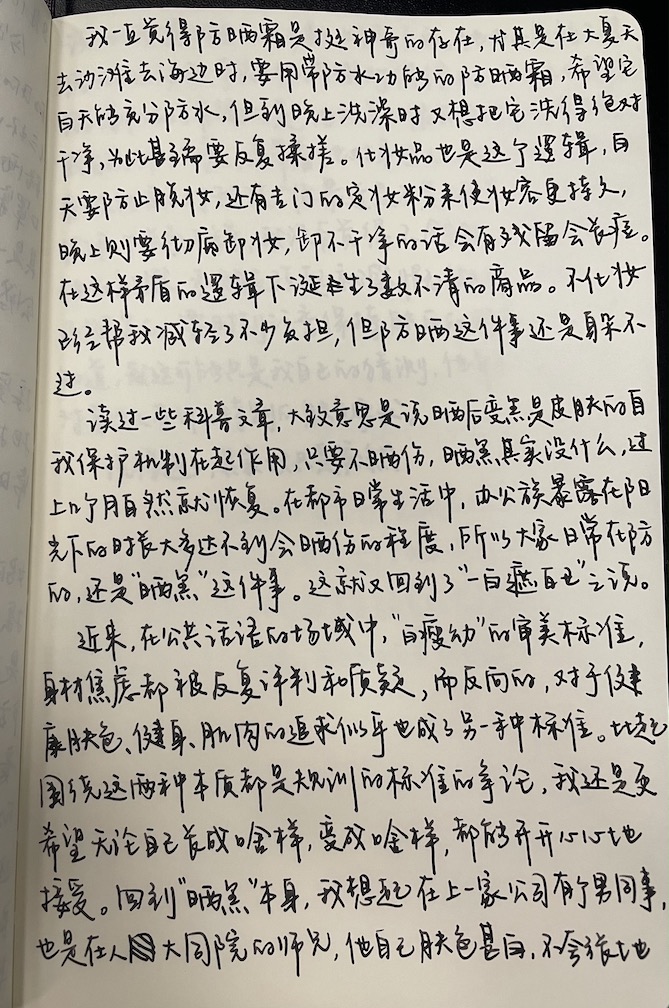 我一直觉得防晒霜是挺神奇的存在，尤其是在大夏天
去沙滩去海边时，要用带防水功能的防晒霜，希望它
白天能充分防水，但到晚上洗澡时又想把它洗得绝对
干净，为此甚至需要反复揉搓。化妆品也是这个逻辑，白
天要防止脱妆，还有专门的定妆粉来使妆容更持久，
晚上则要彻底卸妆，卸不干净的话会有残留会长痘。
在这样矛盾的逻辑下诞生了数不清的商品。不化妆
已经帮我减轻了不少负担，但防晒这件事还是躲不
过。
读过一些科普文章，大致意思是说晒后变黑是皮肤的自
我保护机制在起作用，只要不晒伤，晒黑其实没什么，过
上几个月自然就恢复。在都市日常生活中，办公族暴露在阳
光下的时长大多达不到会晒伤的程度，所以大家日常在防
的，还是“晒黑”这件事。这就又回到了“一白遮百丑”之说。
近来，在公共话语的场域中，“白瘦幼”的审美标准，
身材焦虑都被反复评判和质疑，而反向的，对于健
康肤色、健身、肌肉的追求似乎也成了另一种标准。比起
围绕这两种本质都是规训的标准的争论，我还是更
希望无论自己长成啥样，变成啥样，都能开开心心地
接受。回到“晒黑”本身，我想起在上一家公司有个男同事，
也是在人大同院的师兄，他自己肤色甚白，不会张地